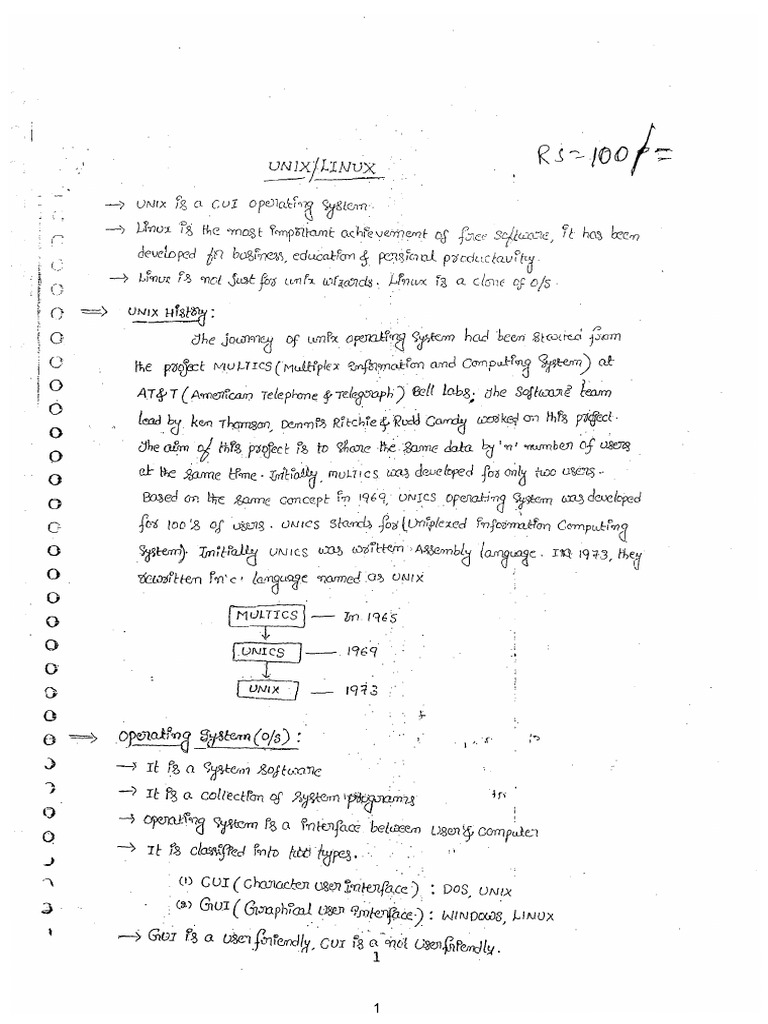 RS=100/=
UNIX/LINUX
→ UNIX is a CUI operating System.
→ Linux is the most important achievement of free software, it has been
developed for business, education & personal productavity.
→ Linux is not just for unix wizards. Linux is a clone of O/S.
⇒ UNIX History:
The journey of unix operating System had been started from
the project MULTICS (Multiplex Information and Computing System) at
AT&T (American Telephone & Telegraph) Bell Labs. The Software team
lead by Ken Thomson, Dennis Ritchie & Rudd Candy worked on this project.
The aim of this project is to share the same data by 'n' number of users
at the same time. Initially, MULTICS was developed for only two users.
Based on the same concept in 1969, UNICS operating System was developed
for 100's of users. UNICS stands for (Uniplexed Information Computing
System). Initially UNICS was written Assembly language. In 1973, they
rewritten in 'c' language named as UNIX
MULTICS — In 1965
UNICS — 1969
UNIX — 1973
⇒ Operating System (O/S):
→ It is a System Software
→ It is a collection of System programs
→ Operating System is a interface between user & Computer
→ It is classified into two types.
(1) CUI (Character User Interface) : DOS, UNIX
(2) GUI (Graphical User Interface) : WINDOWS, LINUX
→ GUI is a user friendly, CUI is a not userfriendly.
1
1